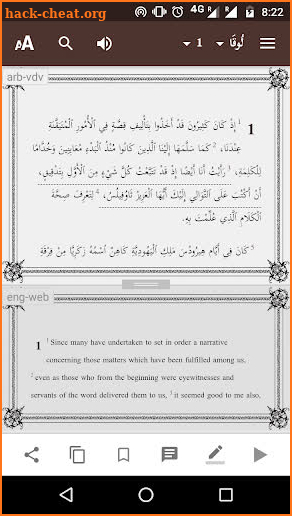 hack-cheat.org
4G
R
8:22
AA
لُوقَا
1
arb-vdv
1 ¹ إِذْ كَانَ كَثِيرُونَ قَدْ أَخَذُوا بِتَأْلِيفِ قِصَّةٍ فِي ٱلْأُمُورِ ٱلْمُتَيَقَّنَةِ
عِنْدَنَا، ² كَمَا سَلَّمَهَا إِلَيْنَا ٱلَّذِينَ كَانُوا مُنْذُ ٱلْبَدْءِ مُعَايِنِينَ وَخُدَّامًا
لِلْكَلِمَةِ، ³ رَأَيْتُ أَنَا أَيْضًا إِذْ قَدْ تَتَبَّعْتُ كُلَّ شَيْءٍ مِنَ ٱلْأَوَّلِ بِتَدْقِيقٍ،
أَنْ أَكْتُبَ عَلَى ٱلتَّوَالِي إِلَيْكَ أَيُّهَا ٱلْعَزِيزُ ثَاوُفِيلُسُ، ⁴ لِتَعْرِفَ صِحَّةَ
ٱلْكَلَامِ ٱلَّذِي عُلِّمْتَ بِهِ.
⁵ كَانَ فِي أَيَّامِ هِيرُودُسَ مَلِكِ ٱلْيَهُودِيَّةِ كَاهِنٌ ٱسْمُهُ زَكَرِيَّا مِنْ فِرْقَةِ
eng-web
1 ¹ Since many have undertaken to set in order a narrative
concerning those matters which have been fulfilled among us,
² even as those who from the beginning were eyewitnesses and
servants of the word delivered them to us, ³ it seemed good to me also,
hack-cheat.org